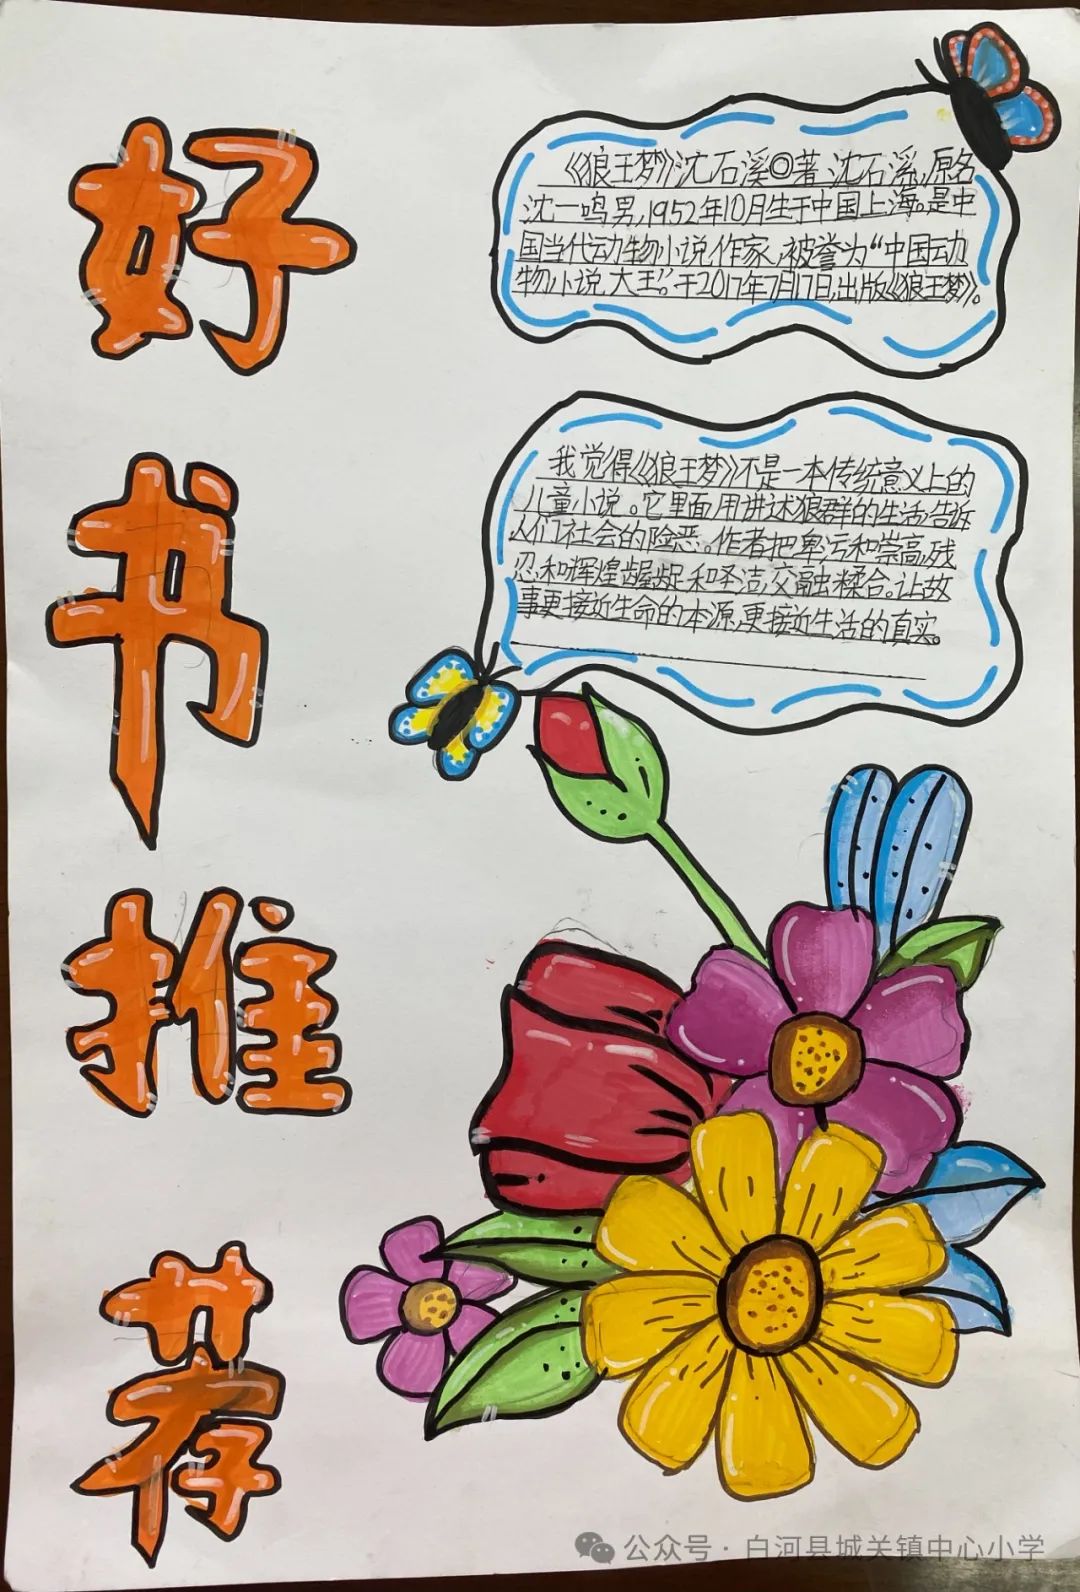 好书推荐
《狼王梦》沈石溪◎著 沈石溪,原名
沈一鸣,男,1952年10月生于中国上海。是中
国当代动物小说作家,被誉为“中国动
物小说大王”。于2017年7月17日,出版《狼王梦》。
我觉得《狼王梦》不是一本传统意义上的
儿童小说。它里面用讲述狼群的生活,告诉
人们社会的险恶。作者把卑污和崇高,残
忍和辉煌,龌龊和圣洁,交融糅合。让故
事更接近生命的本源,更接近生活的真实。
公众号·白河县城关镇中心小学